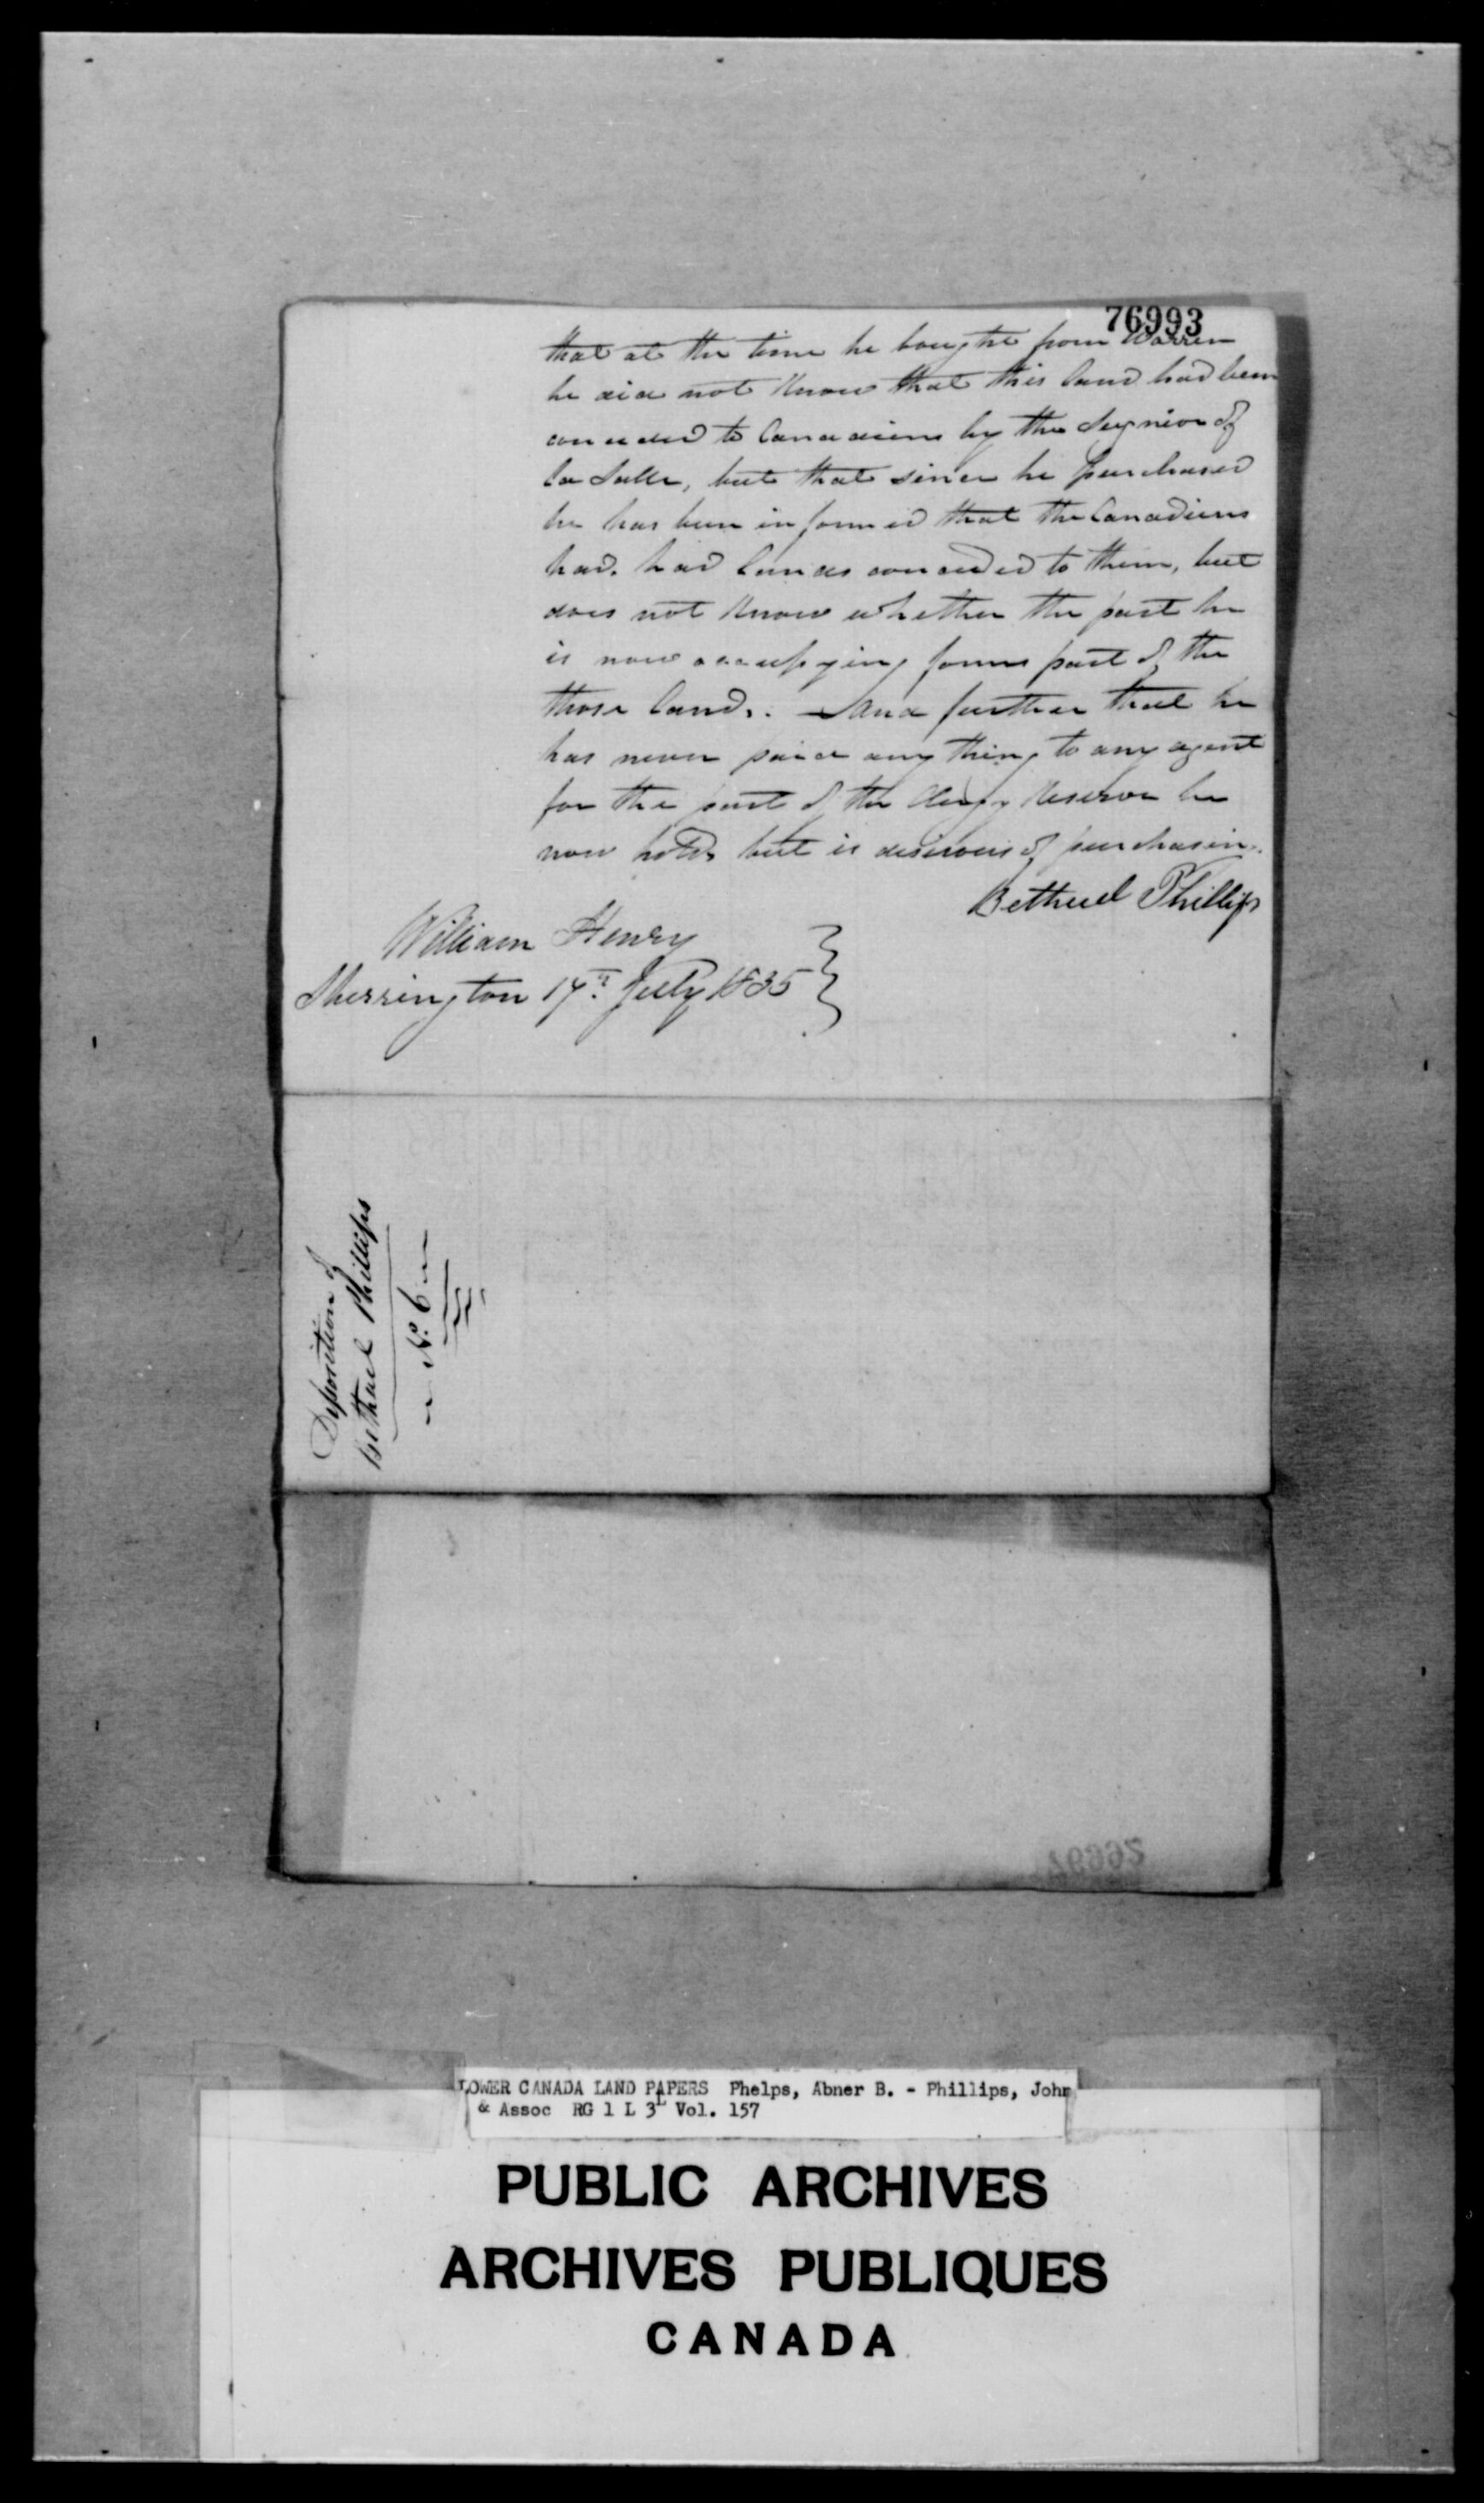 76993
that at the time he bought from Warren
he did not know that this land had been
conceded to Canadians by the Seignior of
La Salle, but that since he purchased
he has been informed that the Canadians
had had lands conceded to them, but
does not know whether the part he
is now occupying forms part of the
those lands. And further that he
has never paid any thing to any agent
for the part of the Clergy Reserve he
now holds but is desirous of purchasing.
Bethuel Phillips
William Henry
Sherrington 17th July 1835
Deposition of
Bethuel Phillips
No. 6
76992
LOWER CANADA LAND PAPERS Phelps, Abner B. - Phillips, John
& Assoc RG 1 L 3L Vol. 157
PUBLIC ARCHIVES
ARCHIVES PUBLIQUES
CANADA